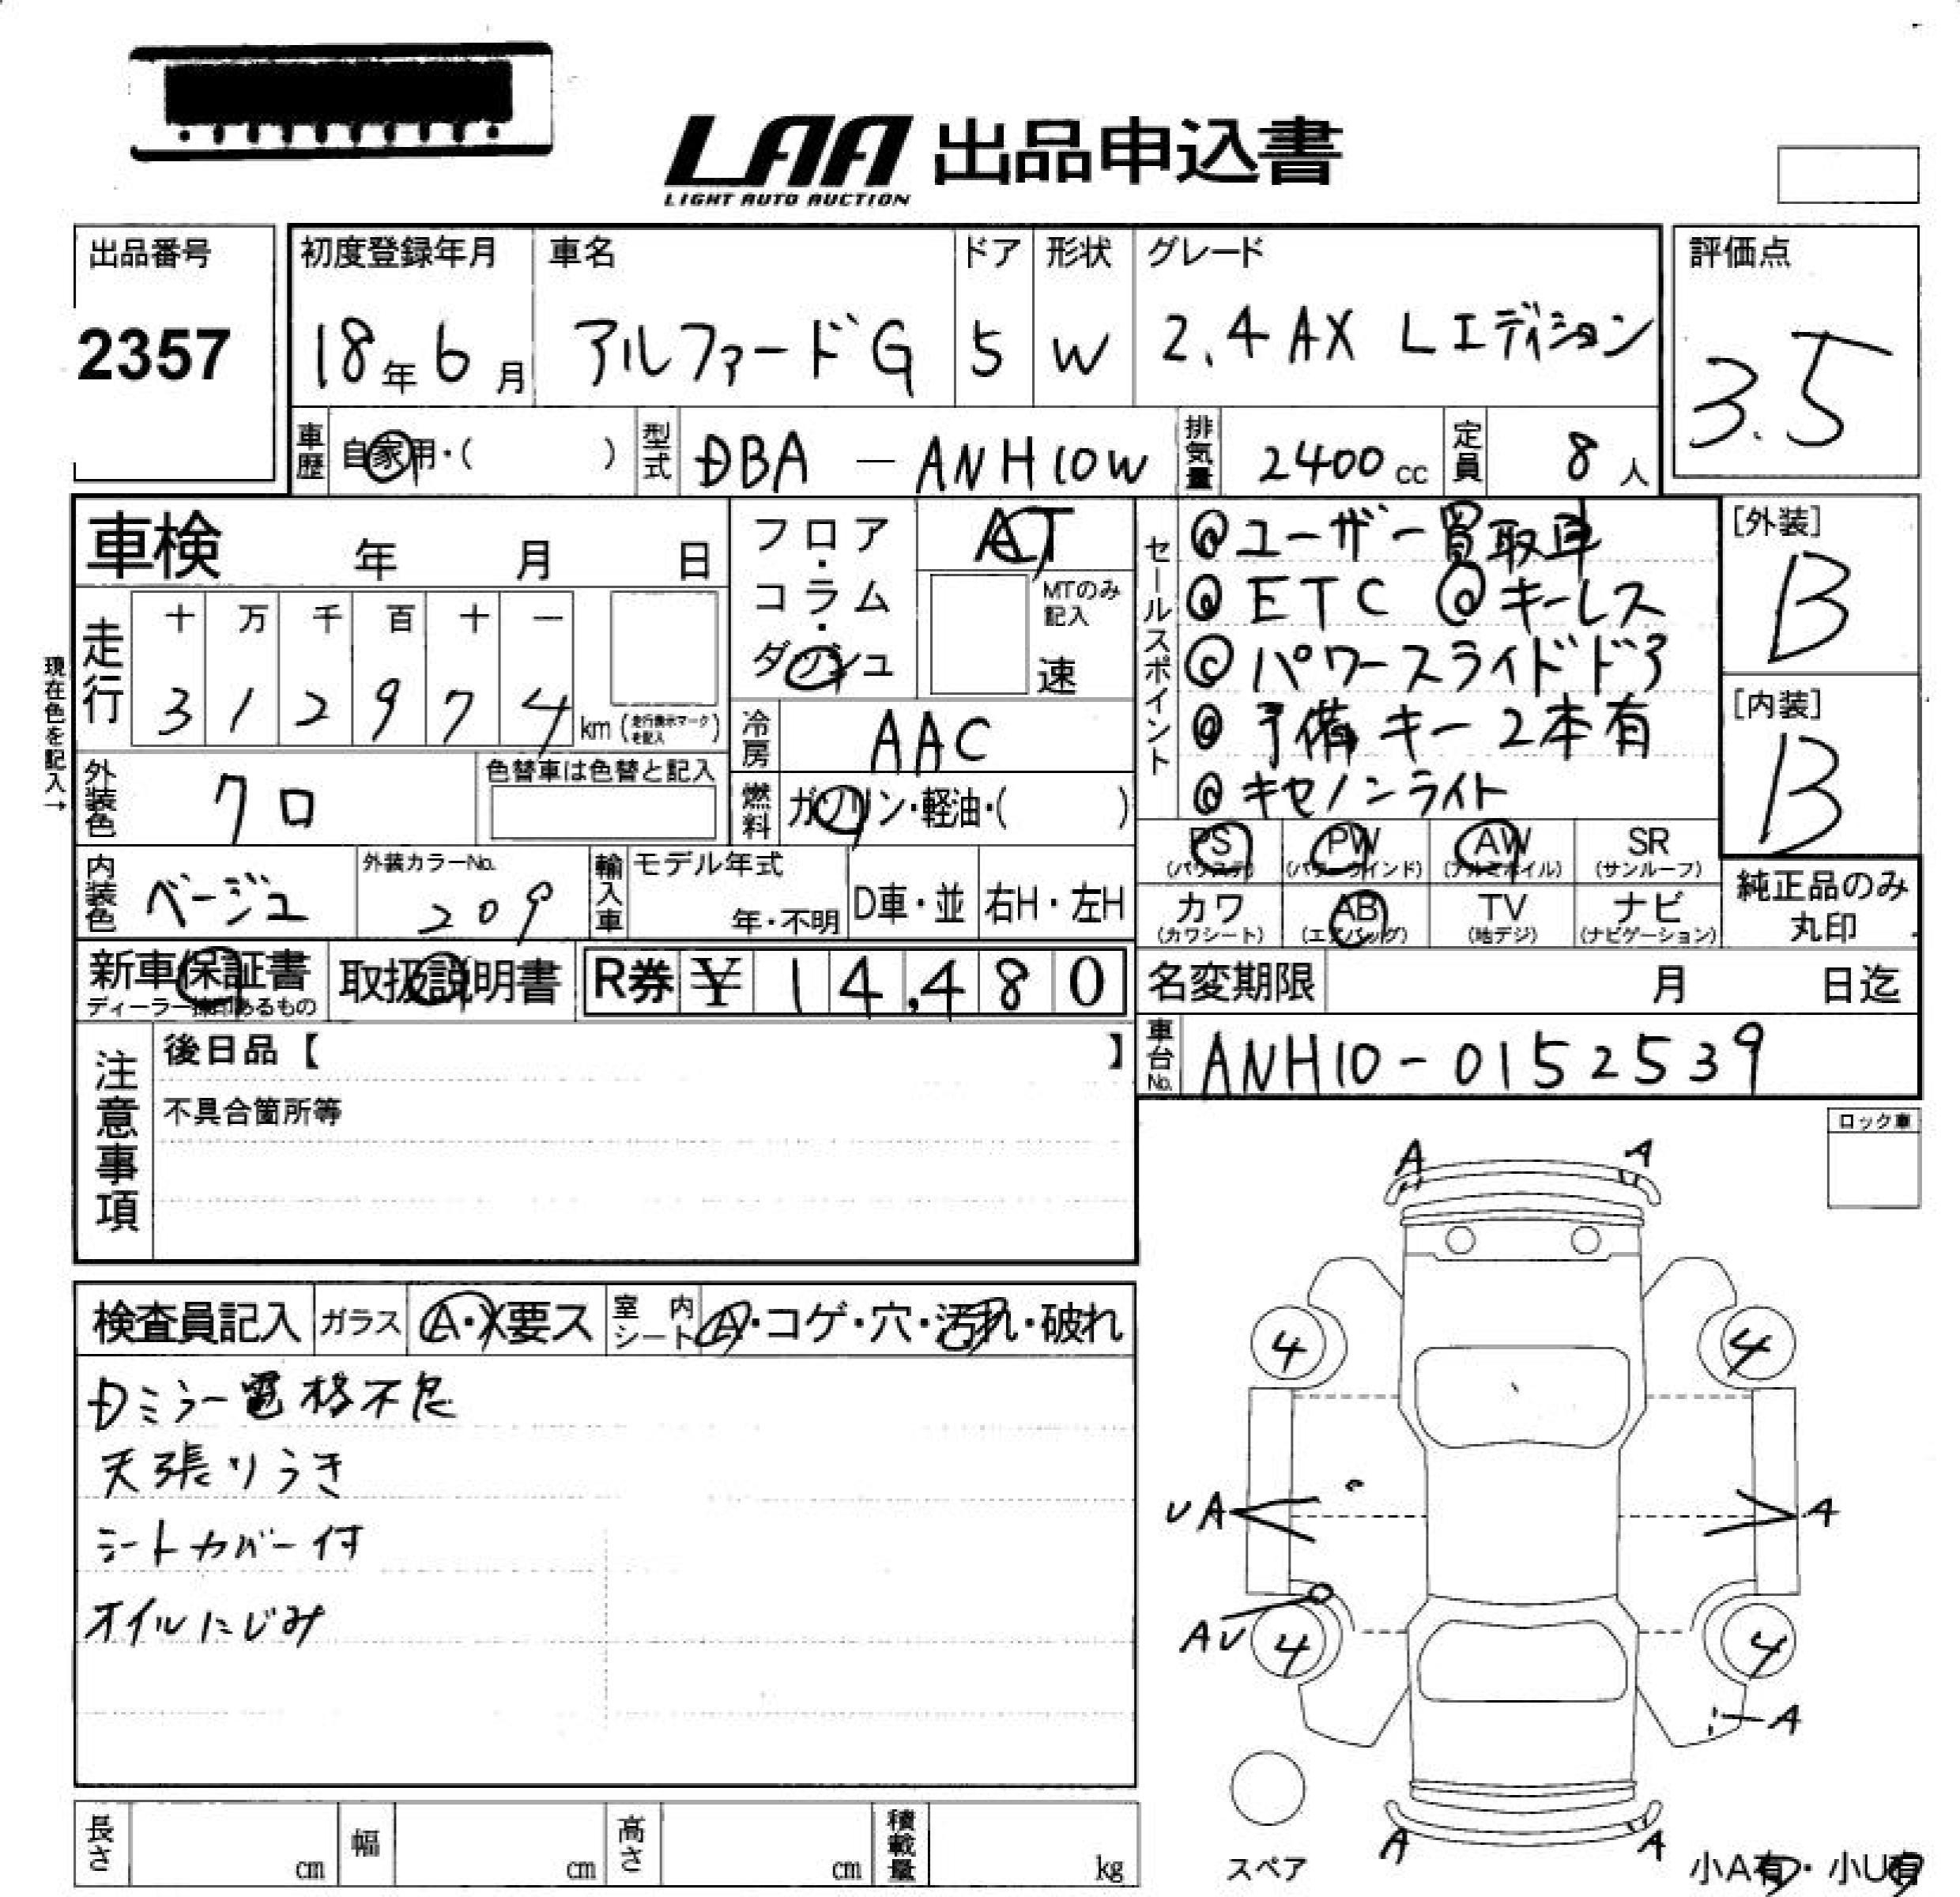 LAA 出品申込書
LIGHT AUTO AUCTION
出品番号
2357
初度登録年月
18年6月
車名
アルファードG
ドア
5
形状
W
グレード
2.4 AX Lエディション
評価点
3.5
車歴 自家用・( )
型式 DBA - ANH10W
排気量 2400cc
定員 8人
車検 年 月 日
フロア・コラム・ダッシュ
AT
MTのみ記入
速
セールスポイント
@ユーザー買取車
@ETC @キーレス
@パワースライドドア
@予備キー2本有
@キセノンライト
[外装]
B
[内装]
B
現在色を記入→
走行
十 万 千 百 十 一
3 1 2 9 7 4 km (走行表示マークを記入)
冷房 AAC
外装色 クロ
色替車は色替と記入
燃料 ガソリン・軽油・( )
PS PW AW SR
(パワステ) (パワーウインド) (アルミホイル) (サンルーフ)
カワ AB TV ナビ
(カワシート) (エアバッグ) (地デジ) (ナビゲーション)
純正品のみ
丸印
内装色 ベージュ
外装カラーNo.
209
輸入車
モデル年式
年・不明
D車・並
右H・左H
新車保証書
ディーラー捺印あるもの
取扱説明書
R券 ¥ 14,480
名変期限 月 日迄
車台No. ANH10-0152539
注意事項
後日品【 】
不具合箇所等
ロック車
検査員記入
ガラス A・X要ス
室内シート A・コゲ・穴・汚れ・破れ
Dミラー電格不良
天張りうき
シートカバー付
オイルにじみ
A A
4 4
UA A
AU 4 4
A
A A
スペア
小A有・小U有
長さ cm
幅 cm
高さ cm
積載量 kg